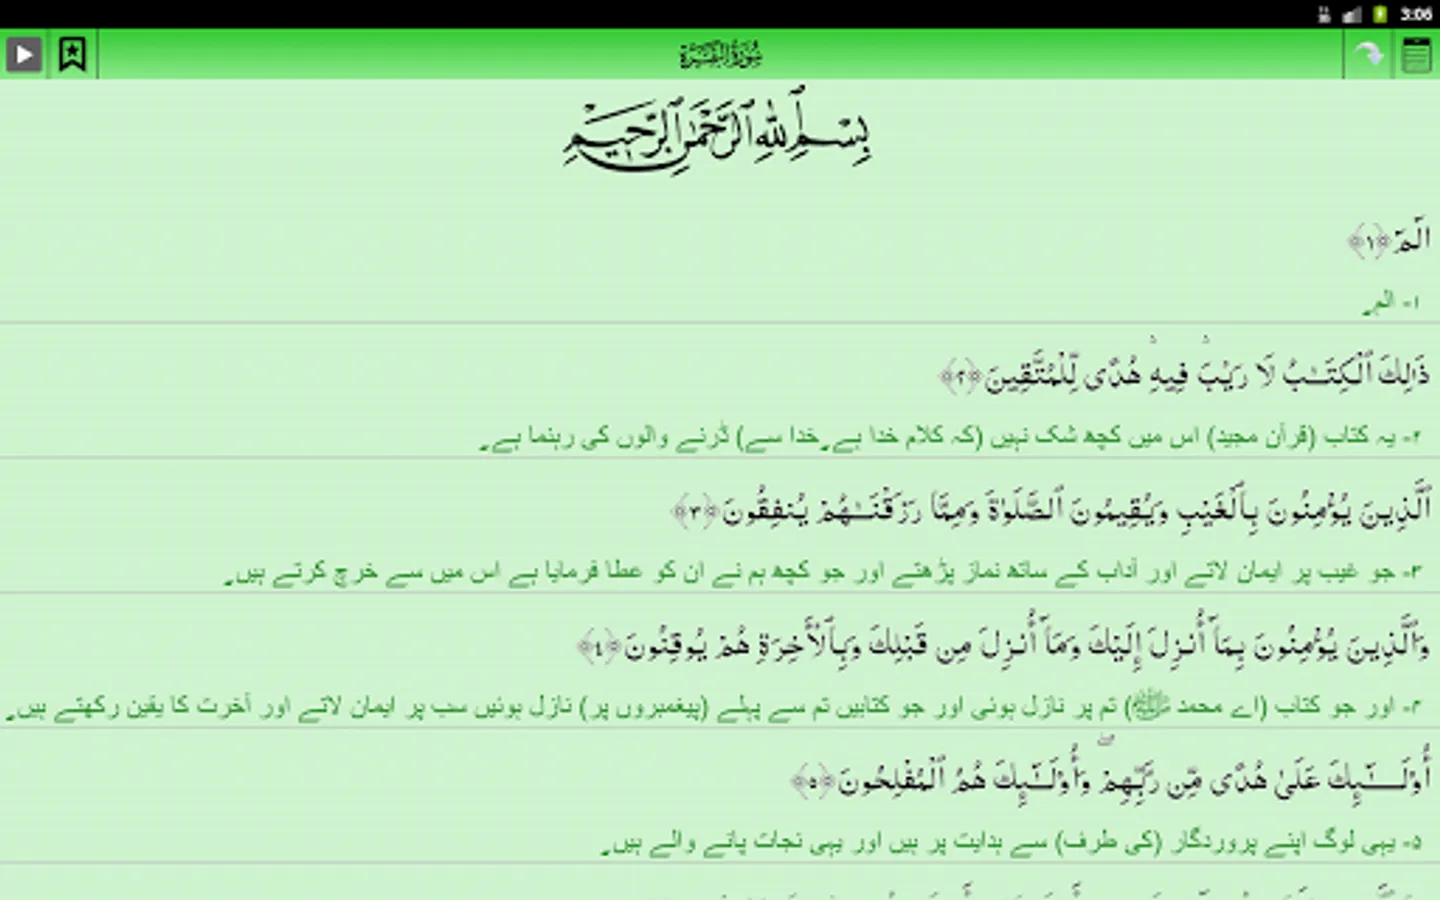 3:06
سُورَةُ البَقَرَة
بِسْمِ ٱللَّهِ ٱلرَّحْمَٰنِ ٱلرَّحِيمِ
الٓمٓ ﴿١﴾
١- الم۔
ذَٰلِكَ ٱلْكِتَـٰبُ لَا رَيْبَ ۛ فِيهِ ۛ هُدًى لِّلْمُتَّقِينَ ﴿٢﴾
۲- یہ کتاب (قرآن مجید) اس میں کچھ شک نہیں (کہ کلام خدا ہے۔خدا سے) ڈرنے والوں کی رہنما ہے۔
ٱلَّذِينَ يُؤْمِنُونَ بِٱلْغَيْبِ وَيُقِيمُونَ ٱلصَّلَوٰةَ وَمِمَّا رَزَقْنَـٰهُمْ يُنفِقُونَ ﴿٣﴾
۳- جو غیب پر ایمان لاتے اور آداب کے ساتھ نماز پڑھتے اور جو کچھ ہم نے ان کو عطا فرمایا ہے اس میں سے خرچ کرتے ہیں۔
وَٱلَّذِينَ يُؤْمِنُونَ بِمَآ أُنزِلَ إِلَيْكَ وَمَآ أُنزِلَ مِن قَبْلِكَ وَبِٱلْأَخِرَةِ هُمْ يُوقِنُونَ ﴿٤﴾
۴- اور جو کتاب (اے محمد ﷺ) تم پر نازل ہوئی اور جو کتابیں تم سے پہلے (پیغمبروں پر) نازل ہوئیں سب پر ایمان لاتے اور آخرت کا یقین رکھتے ہیں۔
أُو۟لَـٰٓئِكَ عَلَىٰ هُدًى مِّن رَّبِّهِمْ ۖ وَأُو۟لَـٰٓئِكَ هُمُ ٱلْمُفْلِحُونَ ﴿٥﴾
۵- یہی لوگ اپنے پروردگار (کی طرف) سے ہدایت پر ہیں اور یہی نجات پانے والے ہیں۔